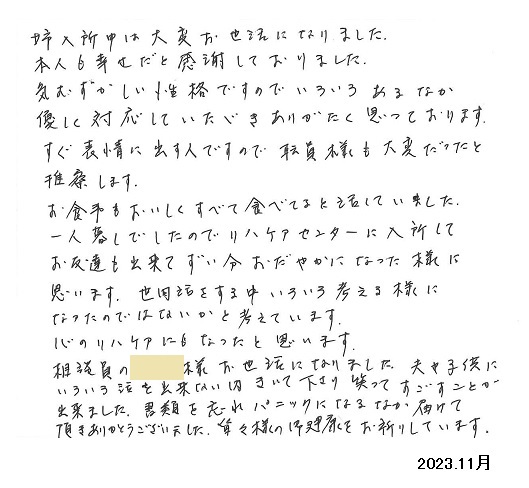 姉入所中は大変お世話になりました.
本人も幸せだと感謝しておりました.
気むずかしい性格ですのでいろいろあるなか
優しく対応していただきありがたく思っております.
すぐ表情に出す人ですので職員様も大変だったと
推察します.
お食事もおいしくすべて食べてると話していました.
一人暮しでしたのでリハケアセンターに入所して
お友達も出来てずい分おだやかになった様に
思います. 世間話をする中いろいろ考える様に
なったのではないかと考えています.
心のリハケアにもなったと思います.
相談員の 様 お世話になりました. 夫や子供に
いろいろ話を出来ない内きいて下さり笑ってすごすことが
出来ました. 書類を忘れパニックになるなか届けて
頂きありがとうございました. 皆々様の御健康をお祈りしています.
2023.11月